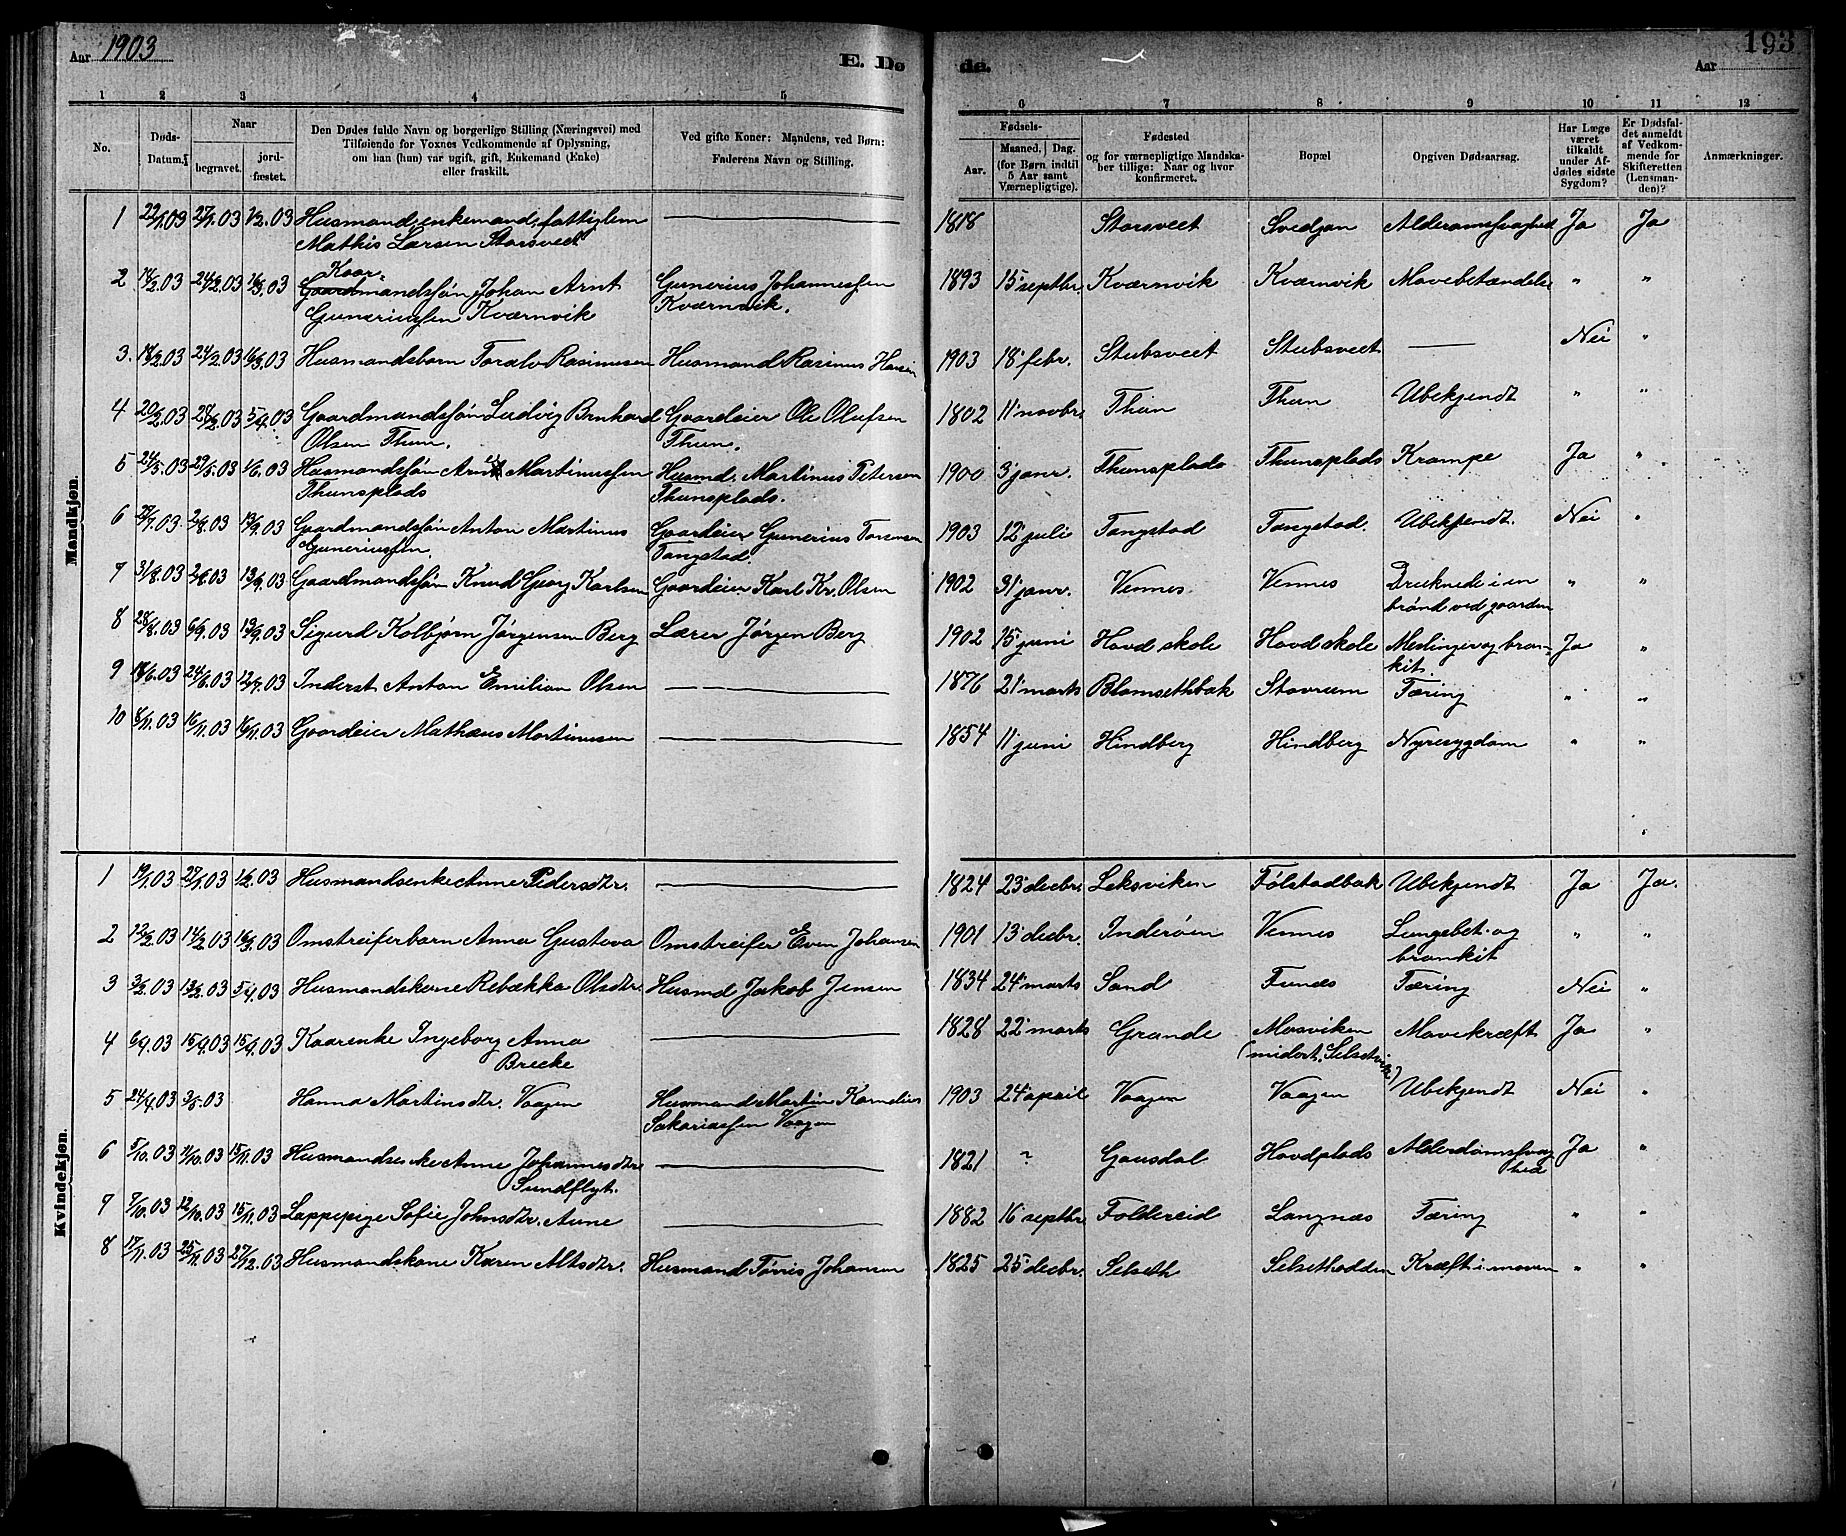 Aar 1903
E. Dø
de.
193
Aar
1 2 3 4 5 6 7 8 9 10 11 12
No.
Døds-Datum.
Naar
begravet.
jord-fæstet.
Den Dødes fulde Navn og borgerlige Stilling (Næringsvei) med
Tilføiende for Voxnes Vedkommende af Oplysning,
om han (hun) var ugift, gift, Enkemand (Enke)
eller fraskilt.
Ved gifte Koner: Mandens, ved Børn:
Faderens Navn og Stilling.
Fødsels-
Aar.
Maaned, Dag.
(for Børn indtil
5 Aar samt
Værnepligtige).
Fødested
og for værnepligtige Mandska-
ber tillige: Naar og hvor
konfirmeret.
Bopæl
Opgiven Dødsaarsag.
Har Læge
været
tilkaldt
under Af-
dødes sidste
Sygdom?
Er Dødsfal-
det anmeldt
af Vedkom-
mende for
Skifteretten
(Lensman-
den)?
Anmærkninger.
Mandkjøn.
1 22/1.03 27/1.03 1/2.03 Husmand, enkemand, fattiglem 1818 Storsveet Svedjan Alderdomssvaghed Ja Ja
Mathis Larsen Storsveet
Kaar
2 18/2.03 24/2.03 Gaardmandssøn Johan Arnt Gunerius Johannessen 1893 15 septbr. Kværnvik Kværnvik Mavebetændelse " "
Guneriussen Kværnvik Kværnvik.
3. 18/2.03 24/2.03 Husmandsbarn Toralv Rasmussen Husmand Rasmus Hansen 1903 18 febr. Stubsveet Stubsveet Nei "
4 20/2.03 28/2.03 5/4.03 Gaardmandssøn Ludvig Bernhard Gaardeier Ole Olufsen 1802 11 novbr. Thun Thun Ubekjendt " "
Olsen Thun. Thun.
5 24/5.03 29/5.03 1/6.03 Husmandssøn Martinussen Husmd. Martinus Petersen 1900 3 janr. Thunsplads Thunsplads Krampe Ja "
Thunsplads Thunsplads.
6 27/7.03 2/8.03 13/9.03 Gaardmandssøn Anton Martinus Gaardeier Gunerius 1903 12 juli Tangstad Tangstad. Ubekjendt. Nei "
Guneriussen. Tangstad.
7 31/8.03 13/9.03 Gaardmandssøn Knud Georg Karlsen Gaardeier Karl Kr. Olsen 1902 31 janr. Vennes. Vennes Druknede i en " "
brønd ved gaarden
8 28/8.03 6/9.03 13/9.03 Sigurd Kolbjørn Jørgensen Berg Lærer Jørgen Berg 1902 15 juni Hovd skole Hovd skole Meslinger og bron- Ja "
kit
9 18/6.03 24/6.03 Inderst Anton Emilian Olsen 1876 21 marts Blomsethbak Stavrum Tæring " "
10 8/11.03 16/11.03 16/11.03 Gaardeier Mathæus Martinusen 1854 11 juni Hindberg Hindberg Nyresygdom " "
Kvindekjøn.
1 19/1.03 27/1.03 1/2.03 Husmandsenke Anne Pedersdtr. 1824 23 decbr. Leksviken Følstadbak Ubekjendt Ja Ja.
2 12/2.03 14/2.03 16/2.03 Omstreiferbarn Anna Gustava Omstreifer Even Johansen 1901 13 decbr. Inderøen Vennes Lungebet. og " "
bronkit
3 3/2.03 13/2.03 5/4.03 Husmandskone Rebækka Olsdtr. Husmd Jakob Jensen 1834 24 marts Sand Funæs Tæring Nei "
4 6/9.03 15/9.03 15/9.03 Kaarenke Ingeborg Anna 1828 22 marts Grande Mosviken Mavekræft Ja "
Brecke (midert. Selsetvik)
5 24/4.03 3/5.03 Hanna Martinsdtr. Vaagen Husmand Martin Kornelius 1903 24 april Vaagen Vaagen Ubekjendt Nei "
Sakariassen Vaagen
6 5/10.03 11/10.03 15/11.03 Husmandsenke Anne Johannesdtr 1821 ? Gausdal Hovdplads Alderdomssvag- Ja "
Sundflyt. hed
7 7/10.03 12/10.03 15/11.03 Lappepige Sofie Johnsdtr. Aune 1882 16 septbr. Foldereid Langnæs Tæring " "
8 17/11.03 25/11.03 27/12.03 Husmandskone Karen Altsdtr. Husmand Tørris Johansen 1825 25 decbr. Selseth Selsethodden Kræft i maven " "